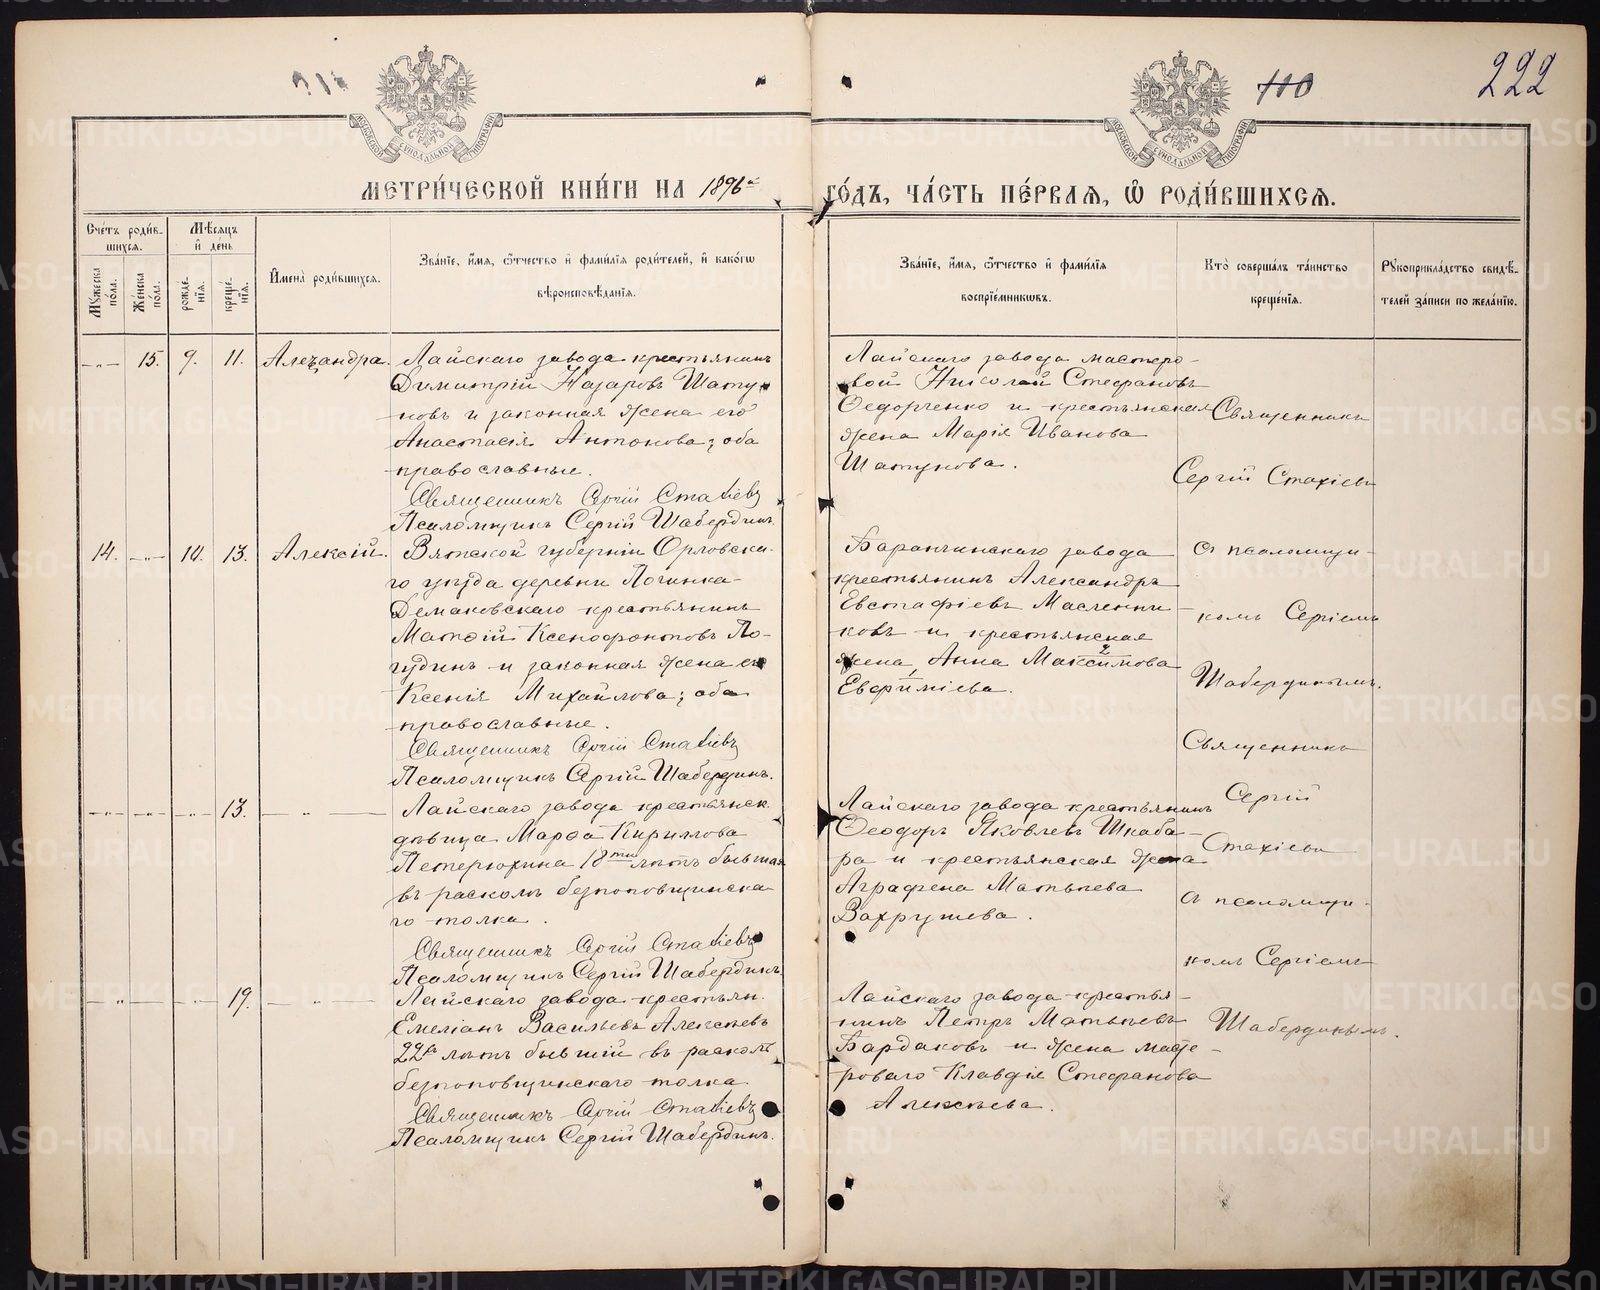 222
110
МЕТРИ́ЧЕСКОЙ КНИ́ГИ НА 1896й
ГО́ДЪ, ЧА́СТЬ ПЕ́РВАѦ, Ѡ҆ РОДИ́ВШИХСѦ.
Сче́тъ роди́вшихся.
Мꙋ́жеска по́ла.
Же́нска по́ла.
Мѣ́сяцъ и҆ де́нь
рожде́нїя.
креще́нїя.
И҆мена̀ роди́вшихся.
Зва́нїе, и҆́мя, ѻ҆́тчество и҆ фами́лїя роди́телей, и҆ како́гѡ
вѣроисповѣ́данїя.
Зва́нїе, и҆́мя, ѻ҆́тчество и҆ фами́лїя
воспрїе́мникѡвъ.
Кто̀ соверша́лъ та́инство
креще́нїя.
Рꙋкоприкла́дство свидѣ́-
телей за́писи по жела́нїю.
-"- 15. 9. 11. Александра.
Лайскаго завода крестьянинъ
Димитрій Назаровъ Шату-
новъ и законная жена его
Анастасія Антонова; оба
православные.
Священникъ Сергій Стахіевъ
Псаломщикъ Сергій Шабердинъ.
Лайскаго завода мастеро-
вой Николай Стефановъ
Ѳедорченко и крестьянская
жена Марія Иванова
Шатунова.
Священникъ
Сергій Стахіевъ
14. -"- 10. 13. Алексій.
Вятской губерніи Орловска-
го уѣзда деревни Починка-
Демаковскаго крестьянинъ
Матѳій Ксенофонтовъ По-
гудинъ и законная жена его
Ксенія Михайлова; оба
православные.
Священникъ Сергій Стахіевъ
Псаломщикъ Сергій Шабердинъ.
Баранчинскаго завода
крестьянинъ Александръ
Евстафіевъ Масленни-
ковъ и крестьянская
жена Анна Максимова
Евфиміева.
съ псаломщи-
комъ Сергіемъ
Шабердинымъ.
-"- -"- -"- 13. -"-
Лайскаго завода крестьянск.
дѣвица Марѳа Кириллова
Петерюхина 18ти лѣтъ бывшая
въ расколѣ безпоповщинска-
го толка.
Священникъ Сергій Стахіевъ
Псаломщикъ Сергій Шабердинъ.
Лайскаго завода крестьянинъ
Ѳеодоръ Яковлевъ Шкаба-
ра и крестьянская жена
Аграфена Матвѣева
Вахрушева.
Священникъ
Сергій
Стахіевъ
съ псаломщи-
комъ Сергіемъ
Шабердинымъ.
-"- -"- 19. -"-
Лайскаго завода крестьян.
Емеліанъ Васильевъ Алексѣевъ
22хъ лѣтъ бывшій въ расколѣ
безпоповщинскаго толка
Священникъ Сергій Стахіевъ
Псаломщикъ Сергій Шабердинъ.
Лайскаго завода крестья-
нинъ Петръ Матвѣевъ
Бардаковъ и жена масте-
роваго Клавдія Стефанова
Алексѣева.
METRIKI.GASO-URAL.RU